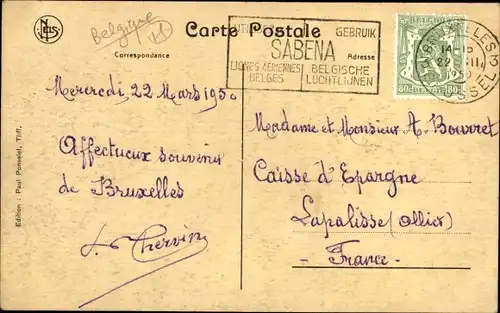 NELS
Belgique
Carte Postale
Correspondance
Adresse
GEBRUIK
SABENA
LIGNES AÉRIENNES BELGES
BELGISCHE LUCHTLIJNEN
BRUXELLES 3
14-15
22 III
1950
BRUSSEL
80 80
Mercredi 22 Mars 1950
Affectueux souvenir
de Bruxelles
Madame et Monsieur A. Bouvret
Caisse d'Epargne
Lapalisse (Allier)
- France -
Edition : Paul Ponselet, Thlf.